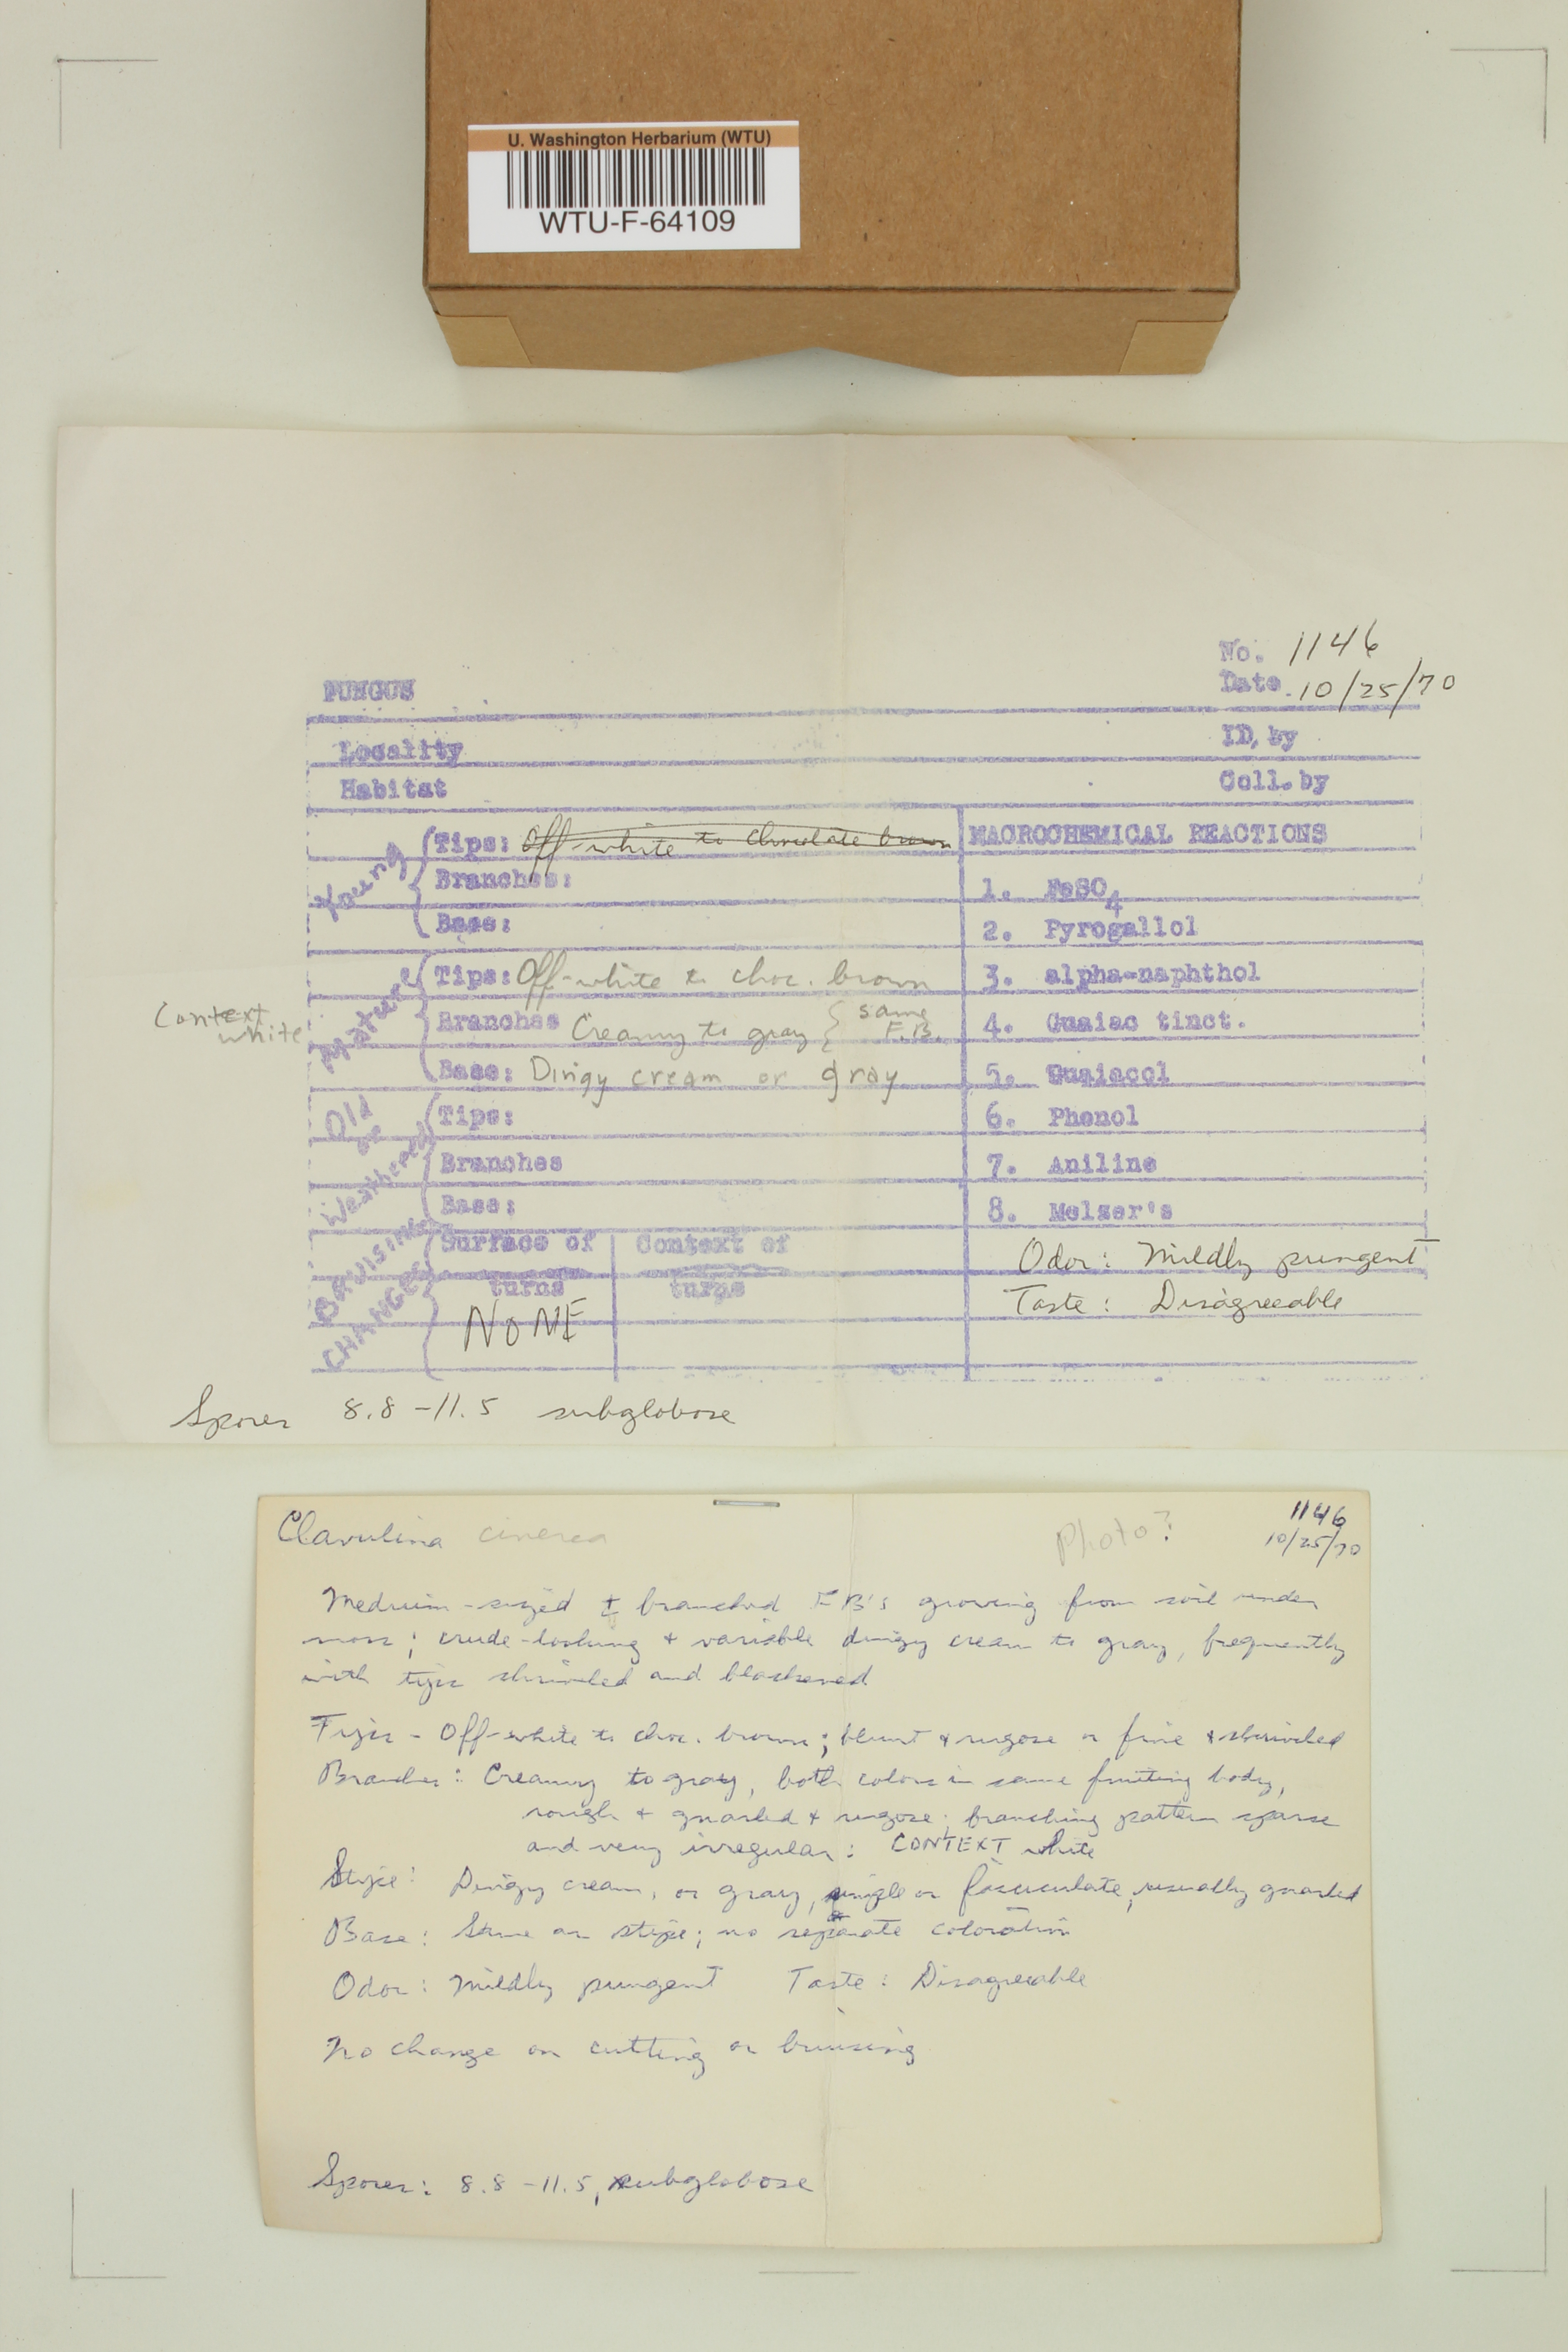 U. Washington Herbarium (WTU)
WTU-F-64109
No. 1146
FUNGUS
Date 10/25/70
Locality
ID, by
Habitat
Coll. by
Young
Tips: Off-white to chocolate brown
MACROCHEMICAL REACTIONS
Branches:
1. FeSO4
Base:
2. Pyrogallol
Mature
Tips: Off-white to choc. brown
3. alpha-naphthol
Context white
Branches Creamy to gray { same F.B.
4. Guaiac tinct.
Base: Dingy cream or gray
5. Guaiacol
Old or Weathered
Tips:
6. Phenol
Branches
7. Aniline
Base:
8. Melzer's
BRUISING CHANGES
Surface of turns
Context of turns
Odor: Mildly pungent
NONE
Taste: Disagreeable
Spores 8.8-11.5 subglobose
Clavulina cinerea
Photo?
1146
10/25/70
Medium-sized ± branched F B's growing from soil under
moss; crude-looking + variable dingy cream to gray, frequently
with tips shriveled and blackened
Tips - Off-white to choc. brown; blunt + rugose or fine + shriveled
Branches: Creamy to gray, both colors in same fruiting body,
rough + gnarled + rugose; branching pattern sparse
and very irregular: CONTEXT white
Stipe: Dingy cream, or gray, single or fasciculate, usually gnarled
Base: Same as stipe; no separate coloration
Odor: Mildly pungent Taste: Disagreeable
No change on cutting or bruising
Spores: 8.8-11.5, subglobose